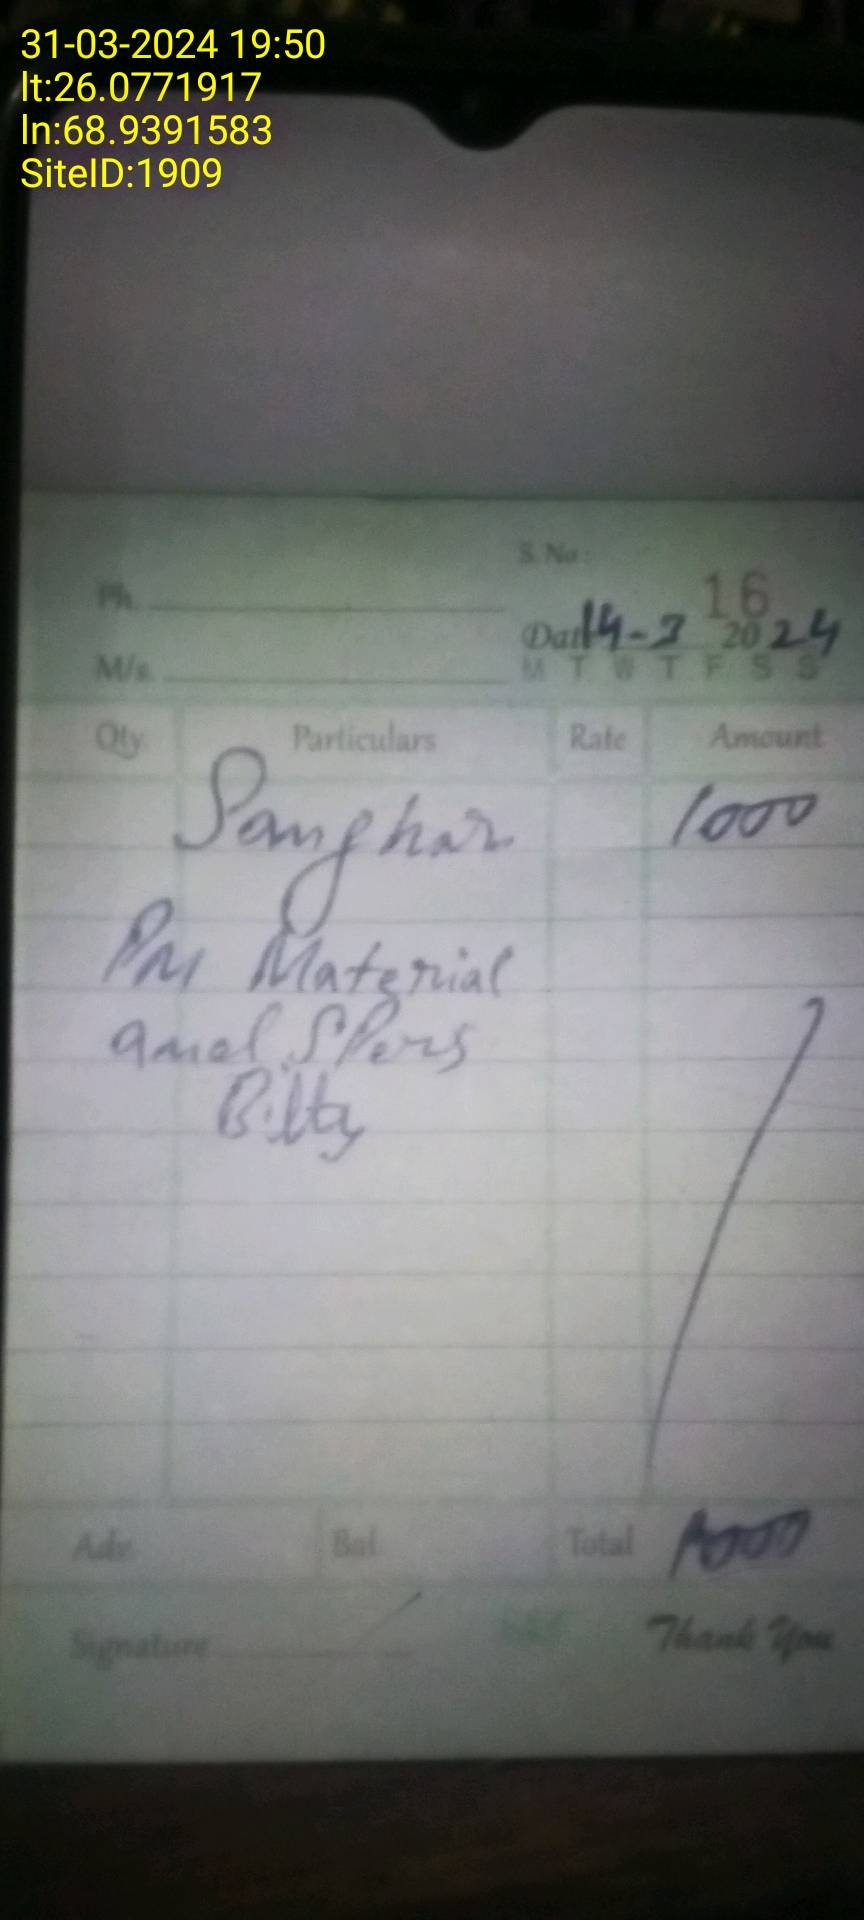 31-03-2024 19:50
lt:26.0771917
ln:68.9391583
SiteID:1909
S. No :
16
Ph.
Date 14-3 2024
M/s.
M T W T F S S
Qty. Particulars Rate Amount
Sanghar 1000
PM Material
and SPers
Bilty
Adv. Bal. Total 1000
Signature Thank You